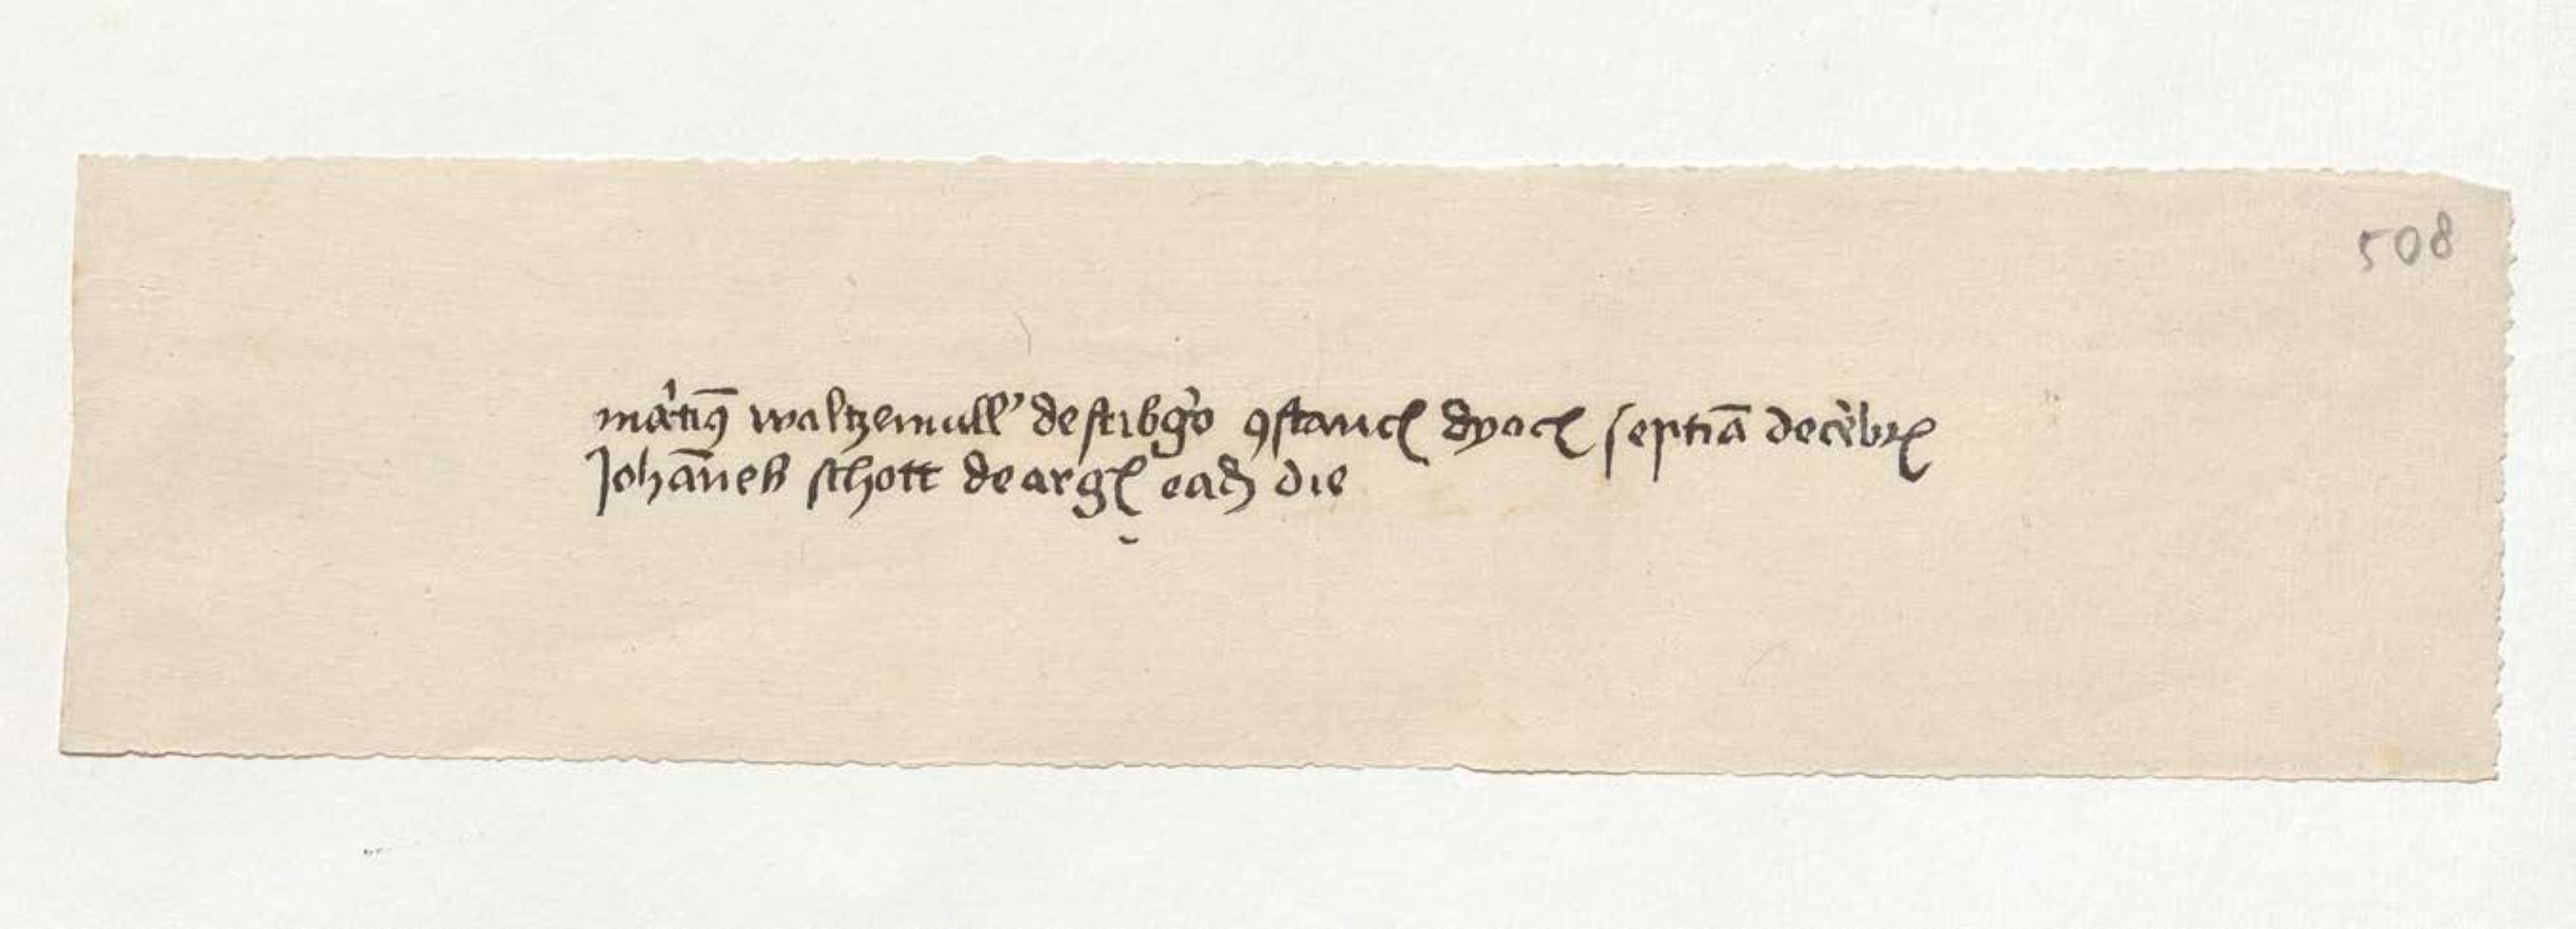 508
mȧtiꝰ waltzemull' de fribgo ꝯstancꝭ dyocꝭ septiā decēbrꝭ
Johāneß schott de argꝭ eadꝫ die